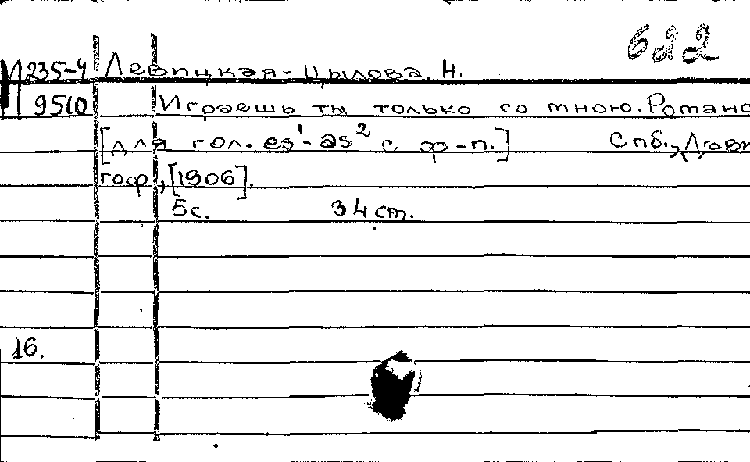 622
М 235-4 Левицкая-Цылова, Н.
9510 Играешь ты только со мною. Романс
[для гол. es¹-as² с ф-п.] Спб.,
[1906].
5с. 34 ст.
16.